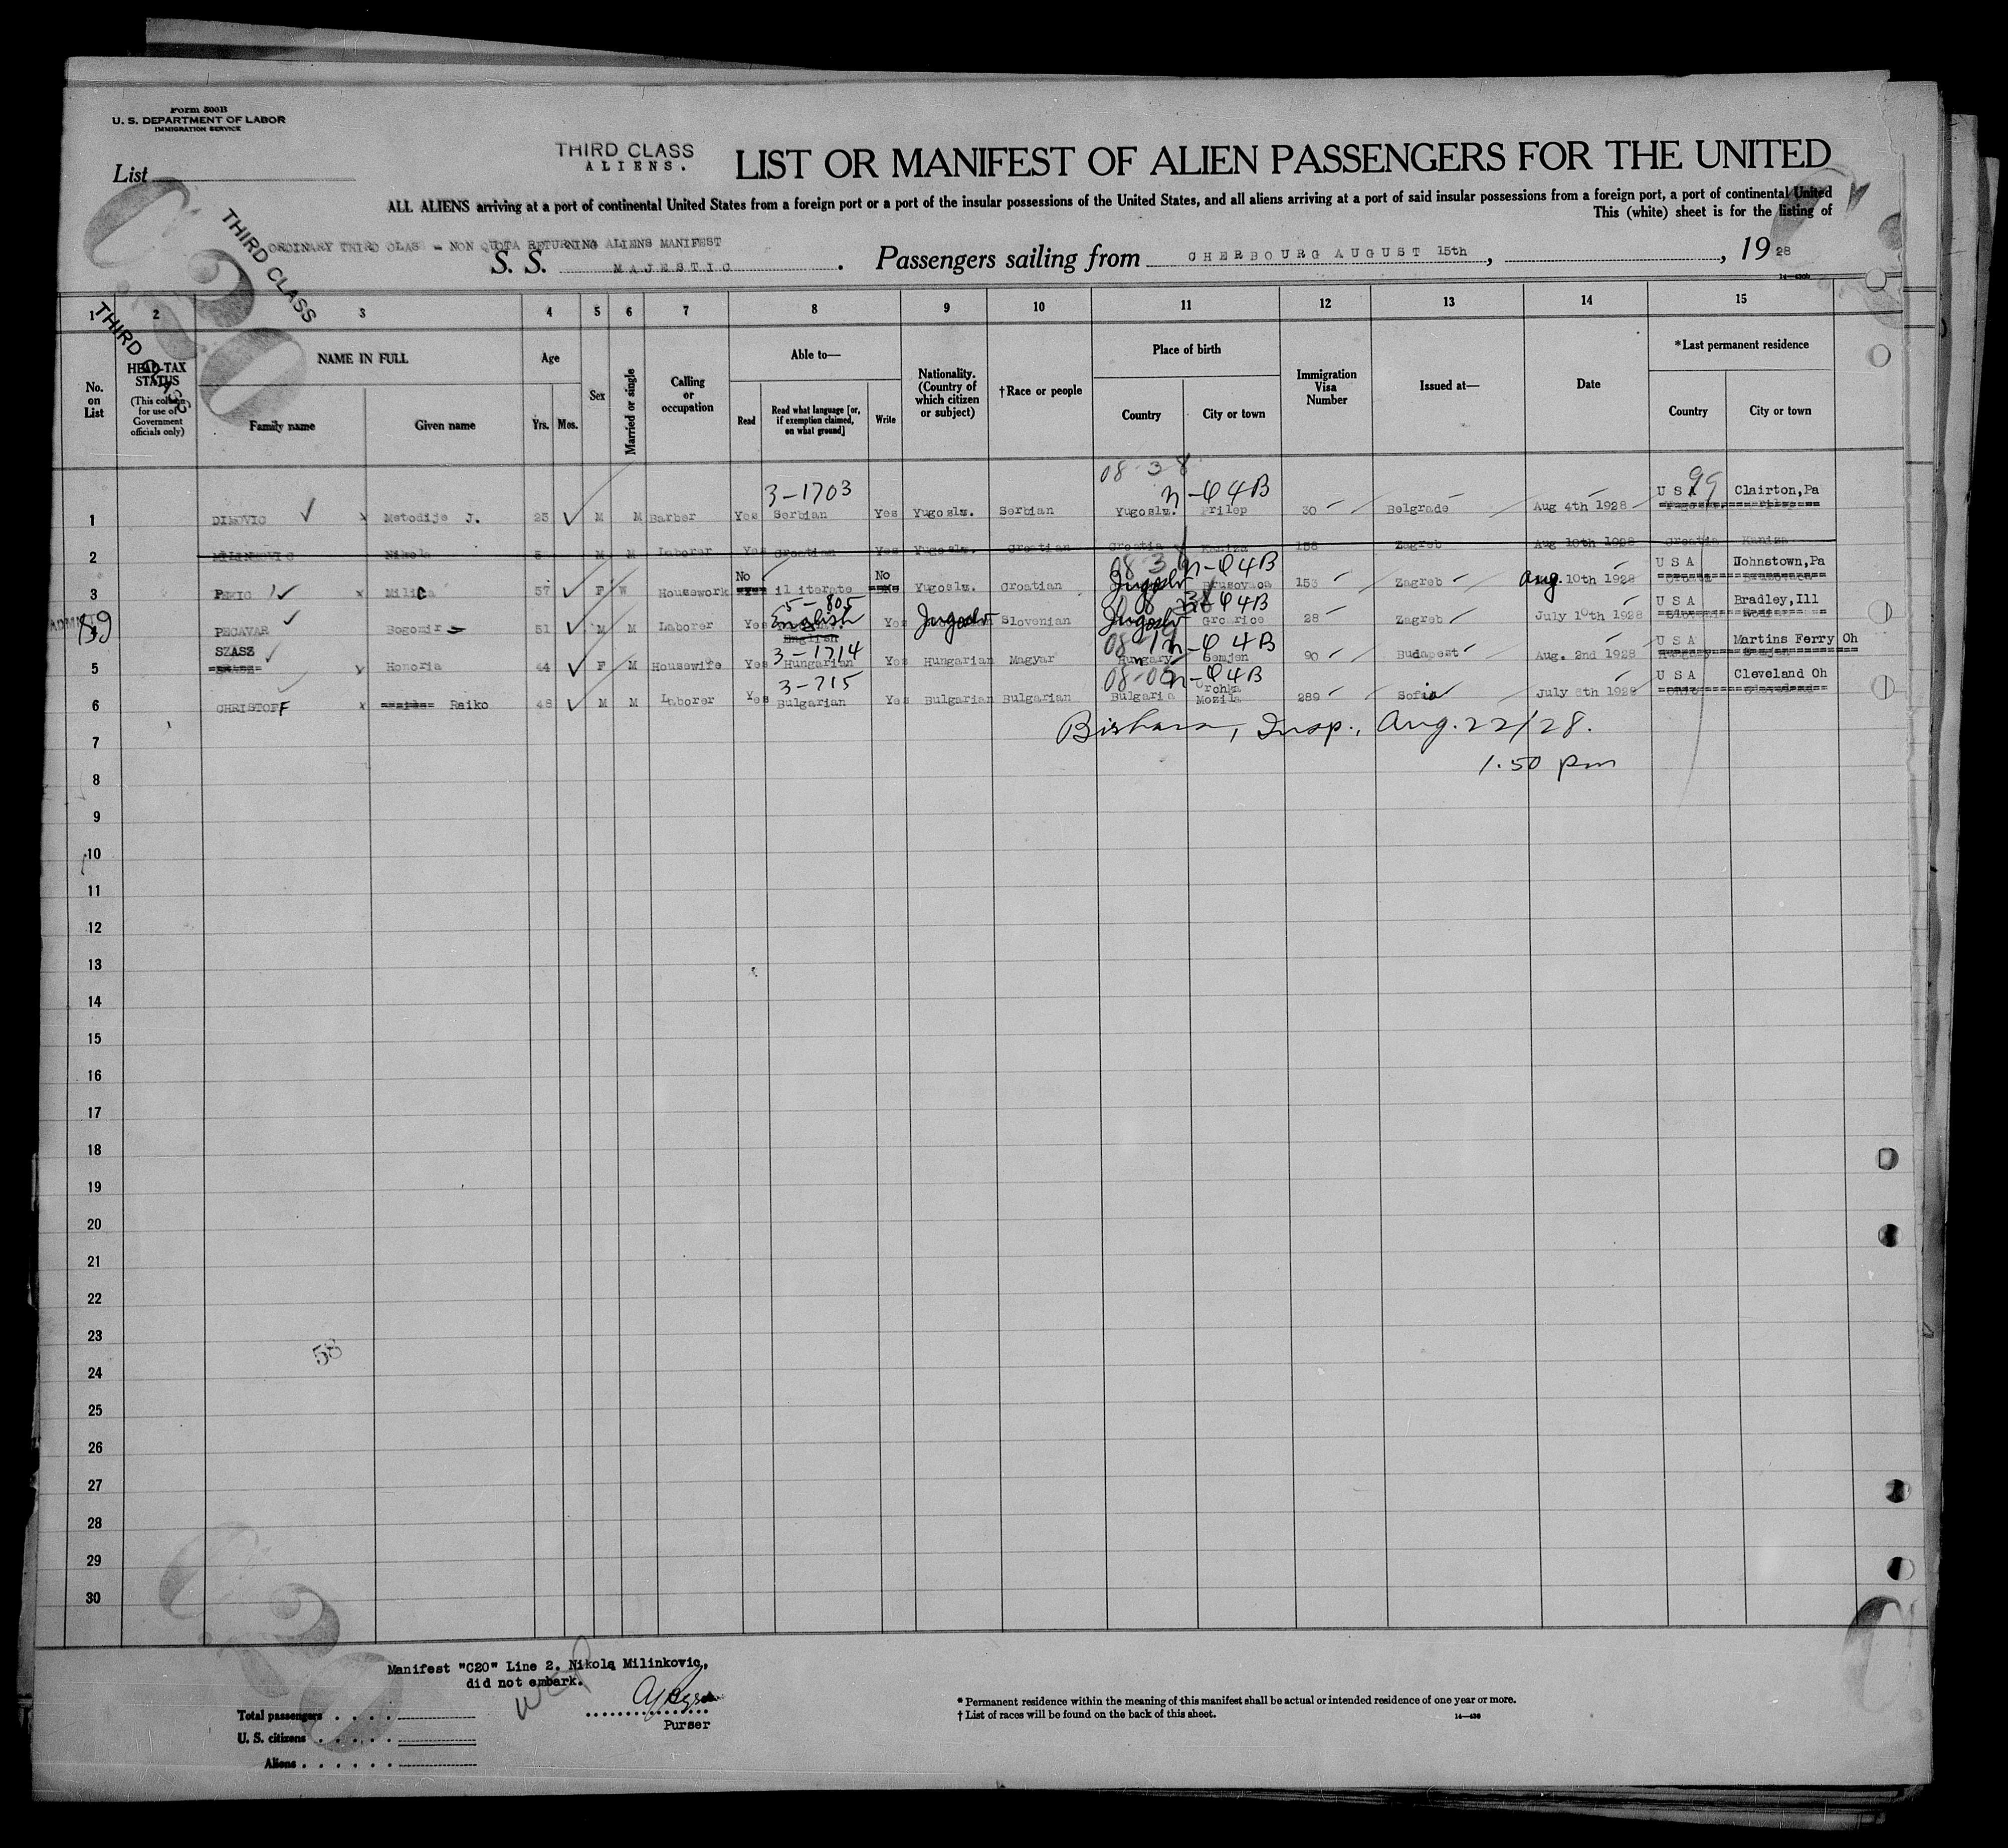 Form 500B
U. S. DEPARTMENT OF LABOR
IMMIGRATION SERVICE
List
THIRD CLASS
ALIENS.
LIST OR MANIFEST OF ALIEN PASSENGERS FOR THE UNITED
ALL ALIENS arriving at a port of continental United States from a foreign port or a port of the insular possessions of the United States, and all aliens arriving at a port of said insular possessions from a foreign port, a port of continental United
This (white) sheet is for the listing of
C20
THIRD CLASS
THIRD CLASS
ORDINARY THIRD CLASS - NON QUOTA RETURNING ALIENS MANIFEST
S. S. MAJESTIC. Passengers sailing from CHERBOURG AUGUST 15th, , 19 28
1 2 3 4 5 6 7 8 9 10 11 12 13 14 15
No. on List
HEAD-TAX STATUS (This column for use of Government officials only)
NAME IN FULL
Family name Given name
Age
Yrs. Mos.
Sex
Married or single
Calling or occupation
Able to—
Read Read what language [or, if exemption claimed, on what ground] Write
Nationality. (Country of which citizen or subject)
†Race or people
Place of birth
Country City or town
Immigration Visa Number
Issued at—
Date
*Last permanent residence
Country City or town
08-38
3-1703 n-Q4B 99
1 DIMOVIC x Metodije J. 25 M M Barber Yes Serbian Yes Yugoslv. Serbian Yugoslv. Prilep 30 Belgrade Aug 4th 1928 U S A Clairton,Pa
2 MILINKOVIC Nikola M M Laborer Yes Croatian Yes Yugoslv. Croatian Croatia Kaniza 158 Zagreb Aug 10th 1928 Croatia Kaniza
n-Q4B
3 PERIC x Milica 57 F W Housework No illiterate No Yugoslv. Croatian Jugoslv Brusovaca 153 Zagreb Aug. 10th 1928 U S A Johnstown,Pa
5-805 Q4B
4 PECAVAR Bogomir 51 M M Laborer Yes English Yes Jugoslv Slovenian Jugoslv 28 Zagreb July 19th 1928 U S A Bradley,Ill
English
3-1714 08-19 n-Q4B
5 SZASZ x Honoria 44 F M Housewife Yes Hungarian Yes Hungarian Magyar Hungary Semjen 90 Budapest Aug. 2nd 1928 U S A Martins Ferry Oh
3-715 n-Q4B
6 CHRISTOFF x Raiko 48 M M Laborer Yes Bulgarian Yes Bulgarian Bulgarian Bulgaria Mozila 289 Sofia July 6th 1928 U S A Cleveland Oh
Bishara, Insp., Aug. 22/28.
1.50 pm
7
8
9
10
11
12
13
14
15
16
17
18
19
20
21
22
23
58
24
25
26
27
28
29
30
C20
Manifest "C20" Line 2. Nikola Milinkovic,
did not embark.
Purser
Total passengers
U. S. citizens
Aliens
* Permanent residence within the meaning of this manifest shall be actual or intended residence of one year or more.
† List of races will be found on the back of this sheet.